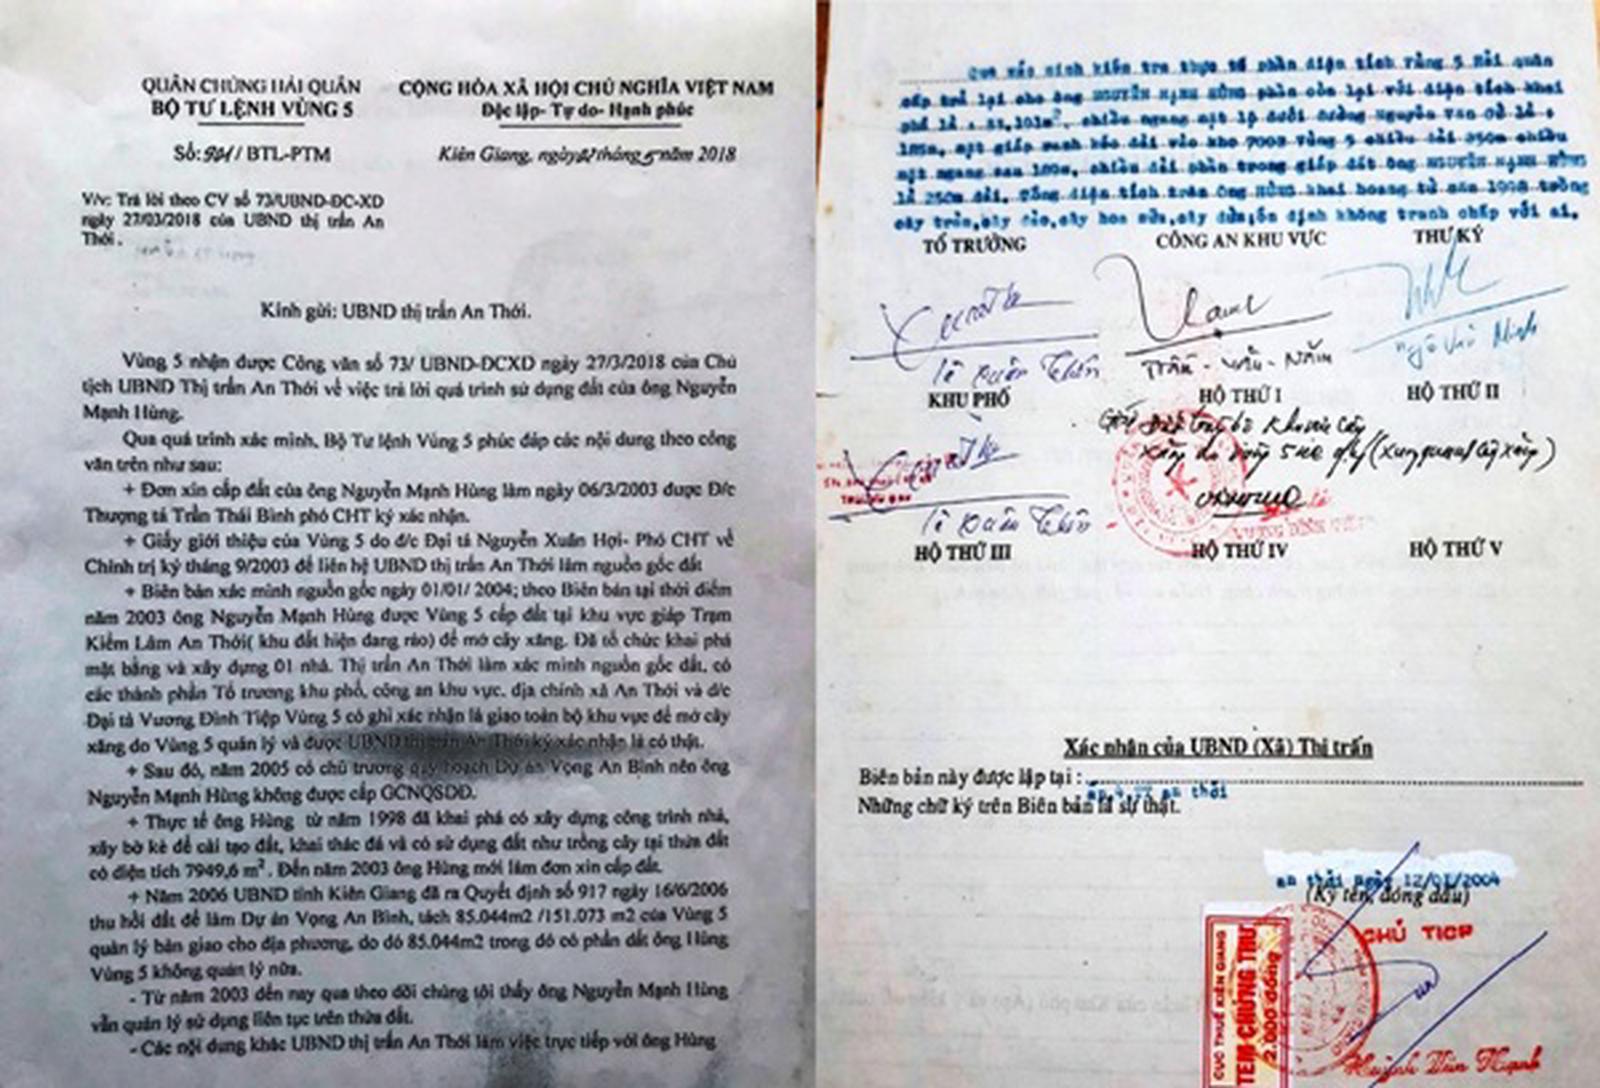 QUÂN CHỦNG HẢI QUÂN
BỘ TƯ LỆNH VÙNG 5
CỘNG HÒA XÃ HỘI CHỦ NGHĨA VIỆT NAM
Độc lập- Tự do- Hạnh phúc
Số: / BTL-PTM
Kiên Giang, ngày tháng 5 năm 2018
V/v: Trả lời theo CV số 73/UBND-ĐC-XD
ngày 27/03/2018 của UBND thị trấn An
Thới.
Kính gửi: UBND thị trấn An Thới.
Vùng 5 nhận được Công văn số 73/ UBND-ĐCXD ngày 27/3/2018 của Chủ
tịch UBND Thị trấn An Thới về việc trả lời quá trình sử dụng đất của ông Nguyễn
Mạnh Hùng.
Qua quá trình xác minh, Bộ Tư lệnh Vùng 5 phúc đáp các nội dung theo công
văn trên như sau:
+ Đơn xin cấp đất của ông Nguyễn Mạnh Hùng làm ngày 06/3/2003 được Đ/c
Thượng tá Trần Thái Bình phó CHT ký xác nhận.
+ Giấy giới thiệu của Vùng 5 do đ/c Đại tá Nguyễn Xuân Hợi- Phó CHT về
Chính trị ký tháng 9/2003 để liên hệ UBND thị trấn An Thới làm nguồn gốc đất
+ Biên bản xác minh nguồn gốc ngày 01/01/ 2004; theo Biên bản tại thời điểm
năm 2003 ông Nguyễn Mạnh Hùng được Vùng 5 cấp đất tại khu vực giáp Trạm
Kiểm Lâm An Thới( khu đất hiện đang rào) để mở cây xăng. Đã tổ chức khai phá
mặt bằng và xây dựng 01 nhà. Thị trấn An Thới làm xác minh nguồn gốc đất, có
các thành phần Tổ trưởng khu phố, công an khu vực, địa chính xã An Thới và đ/c
Đại tá Vương Đình Tiệp Vùng 5 có ghi xác nhận là giao toàn bộ khu vực để mở cây
xăng do Vùng 5 quản lý và được UBND thị trấn An Thới ký xác nhận là có thật.
+ Sau đó, năm 2005 có chủ trương quy hoạch Dự án Vọng An Bình nên ông
Nguyễn Mạnh Hùng không được cấp GCNQSDĐ.
+ Thực tế ông Hùng từ năm 1998 đã khai phá có xây dựng công trình nhà,
xây bờ kè để cải tạo đất, khai thác đá và có sử dụng đất như trồng cây tại thửa đất
có diện tích 7949,6 m². Đến năm 2003 ông Hùng mới làm đơn xin cấp đất.
+ Năm 2006 UBND tỉnh Kiên Giang đã ra Quyết định số 917 ngày 16/6/2006
thu hồi đất để làm Dự án Vọng An Bình, tách 85.044m2 /151.073 m2 của Vùng 5
quản lý bàn giao cho địa phương, do đó 85.044m2 trong đó có phần đất ông Hùng
Vùng 5 không quản lý nữa.
- Từ năm 2003 đến nay qua theo dõi chúng tôi thấy ông Nguyễn Mạnh Hùng
vẫn quản lý sử dụng liên tục trên thửa đất.
- Các nội dung khác UBND thị trấn An Thới làm việc trực tiếp với ông Hùng
Qua xác minh kiểm tra thực tế phần diện tích Vùng 5 Hải quân
cấp trả lại cho ông NGUYỄN MẠNH HÙNG phần còn lại với diện tích khai
phá là : chiều ngang mặt lộ dưới đường Nguyễn Văn Cừ là :
mặt giáp ranh kéo dài vào kho 700B Vùng 5 chiều dài 250m chiều
mặt ngang sau 180m, chiều dài phần trong giáp đất ông NGUYỄN MẠNH HÙNG
là 250m dài. Tổng diện tích trên Ông HÙNG khai hoang từ năm 1998 trồng
cây tràm, cây đào, cây hoa sữa, cây dừa, ổn định không tranh chấp với ai.
TỔ TRƯỞNG CÔNG AN KHU VỰC THƯ KÝ
Lê Xuân Trần - Văn - Năm
KHU PHỐ HỘ THỨ I HỘ THỨ II
Lê Xuân
HỘ THỨ III HỘ THỨ IV HỘ THỨ V
Xác nhận của UBND (Xã) Thị trấn
Biên bản này được lập tại : an thới
Những chữ ký trên Biên bản là sự thật.
an thới ngày 12/01/2004
(Ký tên, đóng dấu)
CHỦ TỊCH
CỤC THUẾ KIÊN GIANG
TEM CHỨNG THƯ
2.000 đồng
Huỳnh Văn Mạnh